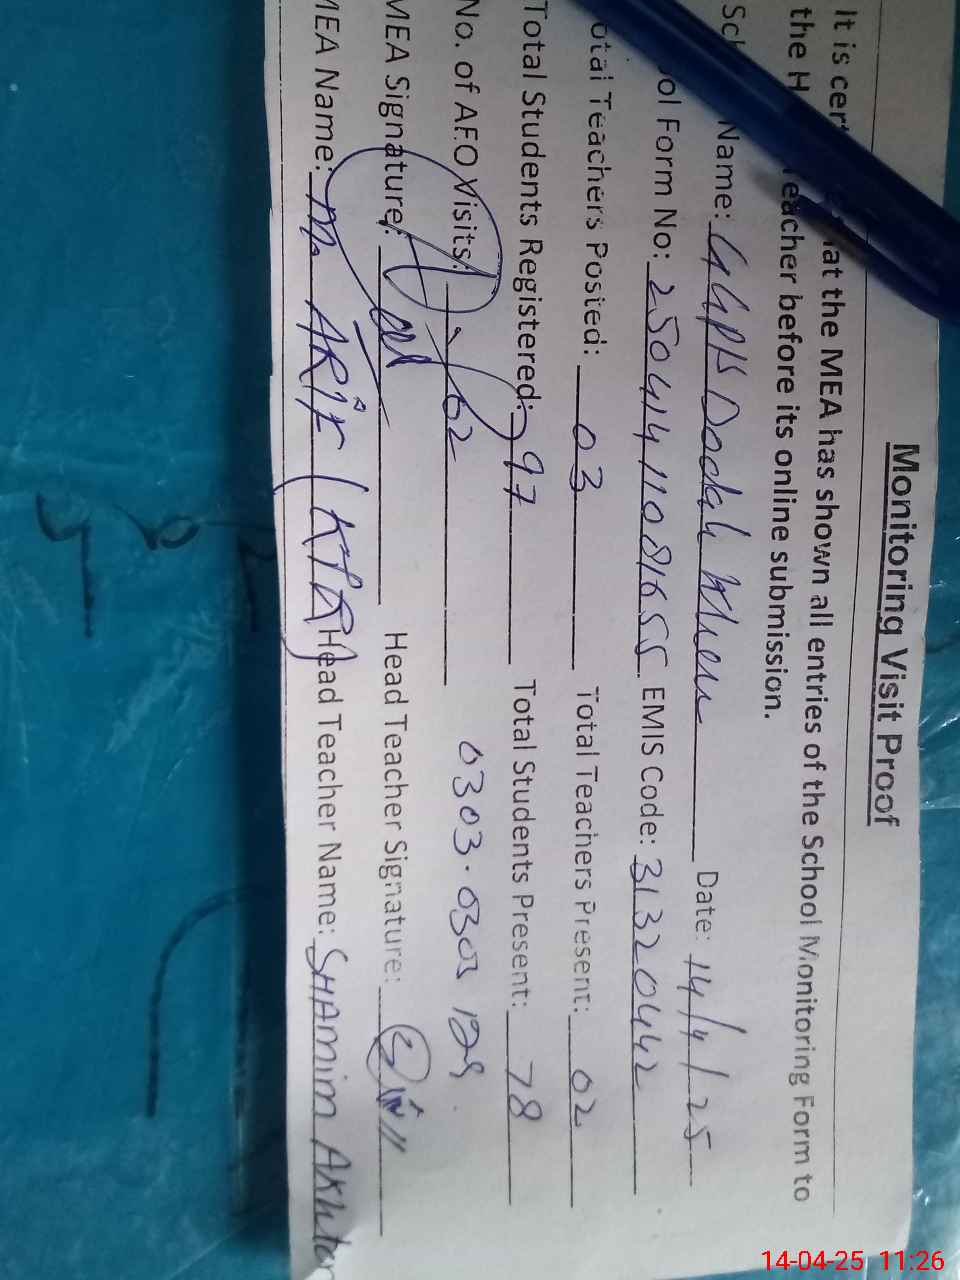 Monitoring Visit Proof
It is cert hat the MEA has shown all entries of the School Monitoring Form to
the H Teacher before its online submission.
Sch Name: GGPS Dadah Date: 14/4/25
ol Form No: 25041411081655 EMIS Code: 31320442
otal Teachers Posted: 03 Total Teachers Present: 02
Total Students Registered: 97 Total Students Present: 78
No. of AEO Visits: 02 0303-0303
MEA Signature: Head Teacher Signature:
MEA Name: M. ARIF Head Teacher Name: SHAMIM AKHtar
14-04-25 11:26